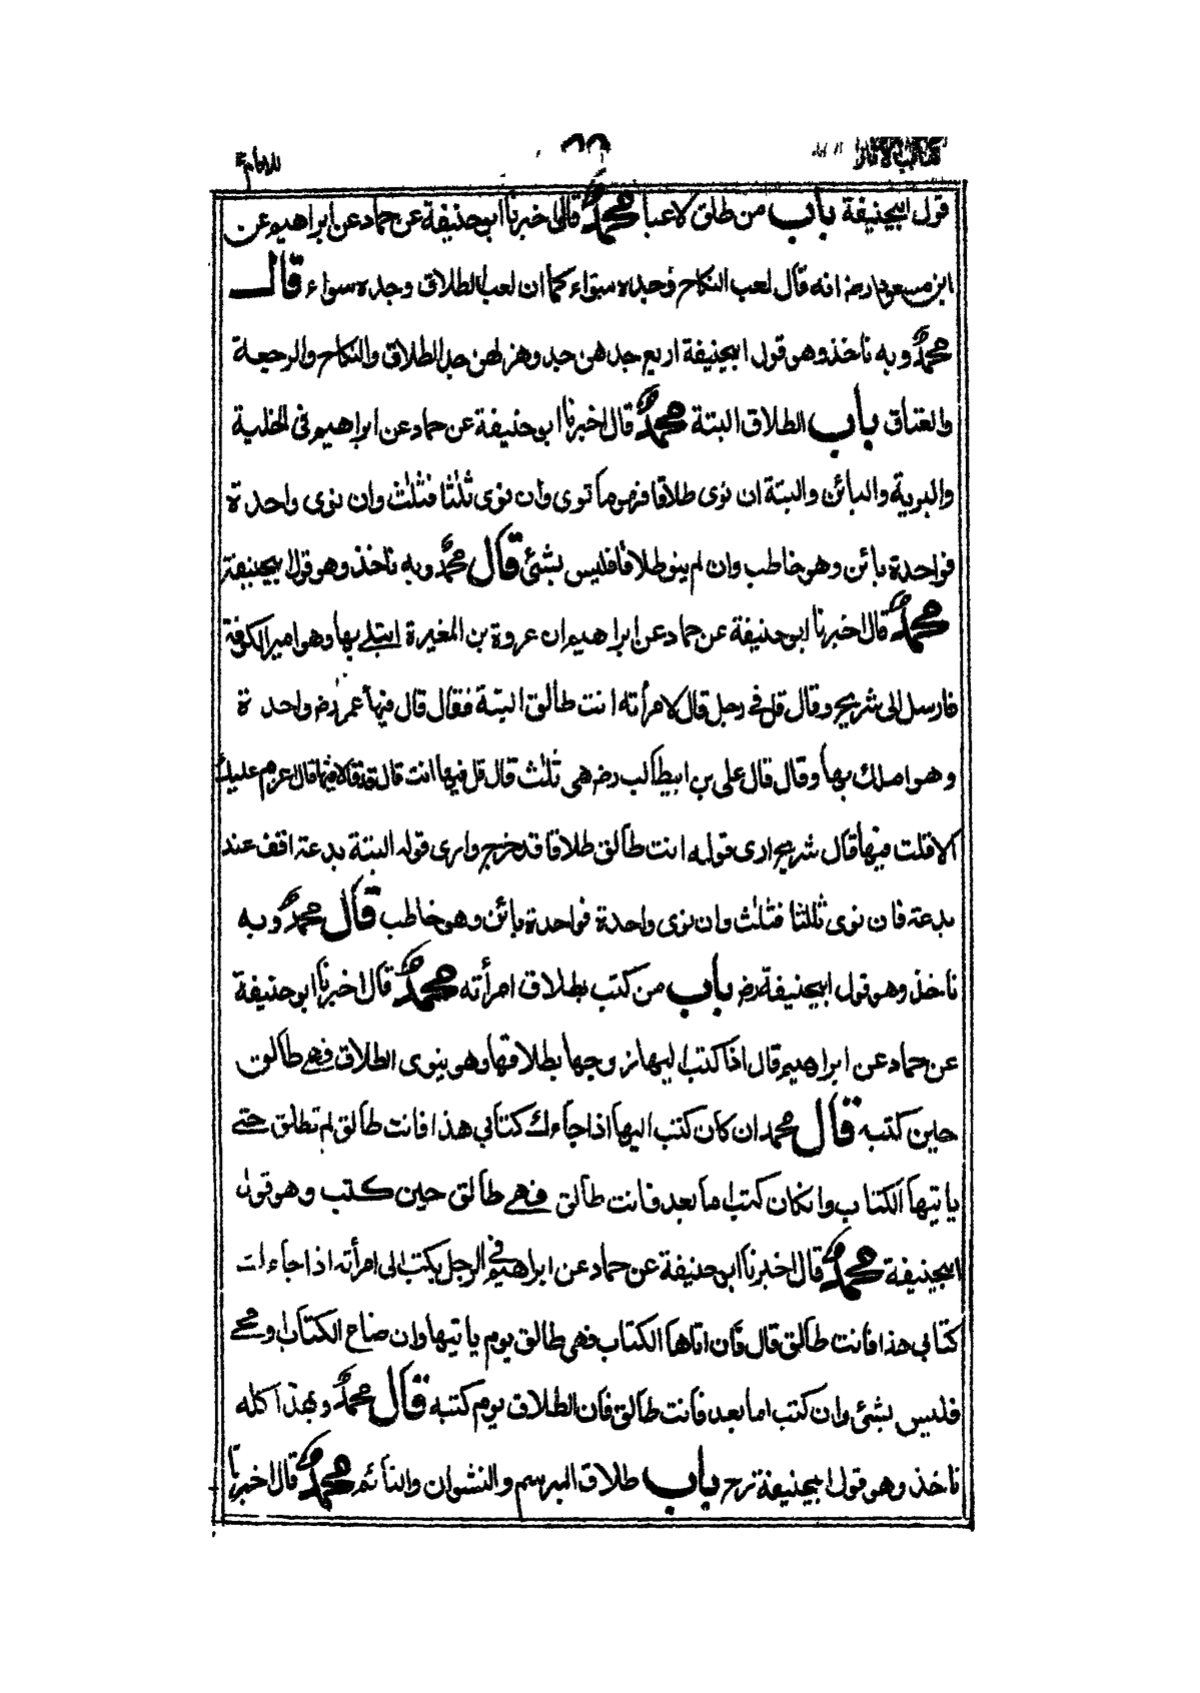 كتاب الآثار
للامام محمد
قول ابيحنيفة باب من طلق لاعبا محمد قال اخبرنا ابو حنيفة عن حماد عن ابراهيم عن
ابن مسعود رضـ انه قال لعب النكاح وجده سواء كما ان لعب الطلاق وجده سواء قال
محمد وبه ناخذ وهو قول ابيحنيفة اربع جد هن جد وهزلهن جد الطلاق والنكاح والرجعة
والعتاق باب الطلاق البتة محمد قال اخبرنا ابو حنيفة عن حماد عن ابراهيم فى الخلية
والبرية والبائن والبتة ان نوى طلاقا فهو ما نوى وان نوى ثلثا فثلث وان نوى واحدة
فواحدة بائن وهو خاطب وان لم ينو طلاقا فليس بشئ قال محمد وبه ناخذ وهو قول ابيحنيفة
محمد قال اخبرنا ابو حنيفة عن حماد عن ابراهيم ان عروة بن المغيرة ابتلى بها وهو امير الكوفة
فارسل الى شريح وقال قل فى رجل قال لامرأته انت طالق البتة فقال قال فيها عمر رضـ واحدة
وهو املك بها وقال قال على بن ابيطالب رضـ هى ثلث قال قل فيها انت قال قد قالا فيها قال اعزم عليك
الا قلت فيها قال شريح ارى قوله انت طالق طلاقا قد خرج وارى قوله البتة بدعة اقف عند
بدعة فان نوى ثلثا فثلث وان نوى واحدة فواحدة بائن وهو خاطب قال محمد وبه
ناخذ وهو قول ابيحنيفة رضـ باب من كتب بطلاق امرأته محمد قال اخبرنا ابو حنيفة
عن حماد عن ابراهيم قال اذا كتب اليها زوجها بطلاقها وهو ينوى الطلاق فهى طالق
حين كتبه قال محمد ان كان كتب اليها اذا جاءك كتابي هذا فانت طالق لم تطلق حتى
ياتيها الكتاب وانكان كتب اما بعد فانت طالق فهى طالق حين كتب وهو قول
ابيحنيفة محمد قال اخبرنا ابو حنيفة عن حماد عن ابراهيم فى الرجل يكتب الى امرأته اذا جاءك
كتابي هذا فانت طالق قال فان اتاها الكتاب فهى طالق يوم ياتيها وان ضاع الكتاب او محى
فليس بشئ وان كتب اما بعد فانت طالق فان الطلاق يوم كتبه قال محمد وبهذا كله
ناخذ وهو قول ابيحنيفة رح باب طلاق المبرسم والنشوان والنائم محمد قال اخبرنا